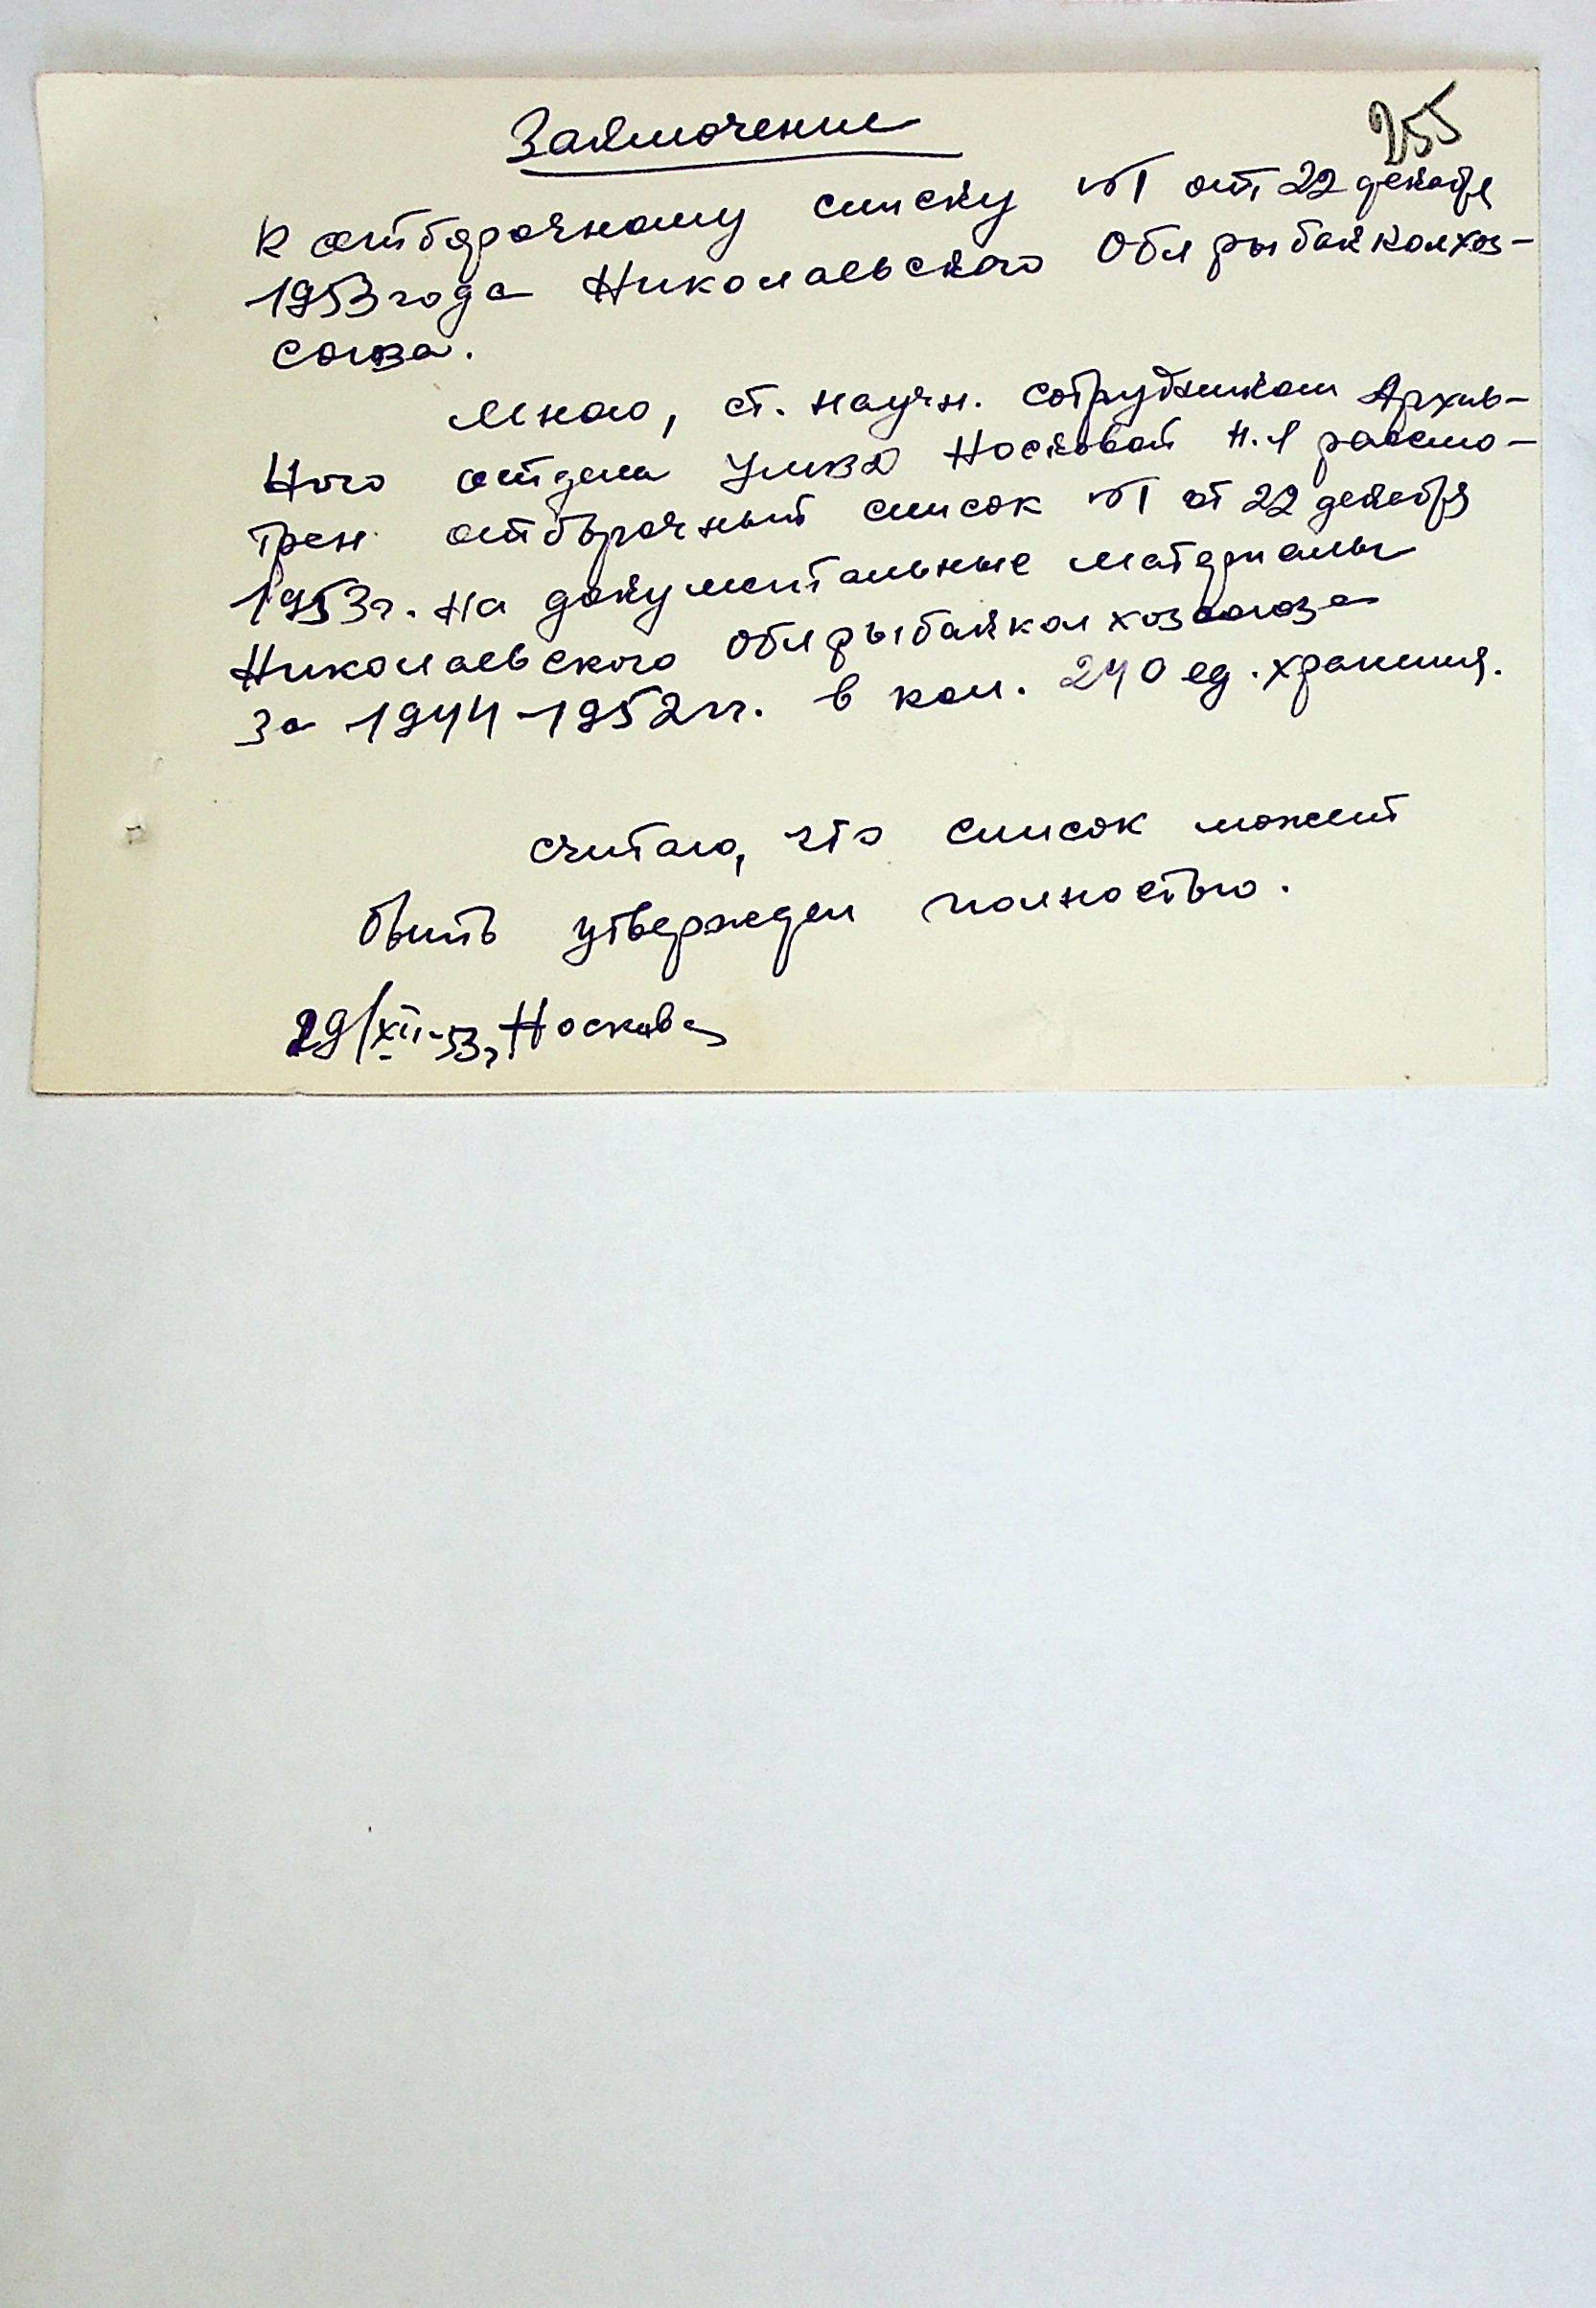 255
Заключение
к отборочному списку №1 от 22 декабря
1953 года Николаевского Облрыбакколхоз-
союза.
Мною, ст. научн. сотрудником Архив-
ного отдела УМВД Носковой Н.Л рассмо-
трен отборочный список №1 от 22 декабря
1953г. на документальные материалы
Николаевского Облрыбакколхозсоюза
за 1944-1952гг. в кол. 240 ед. хранения.
считаю, что список может
быть утвержден полностью.
29/XII-53г Носкова